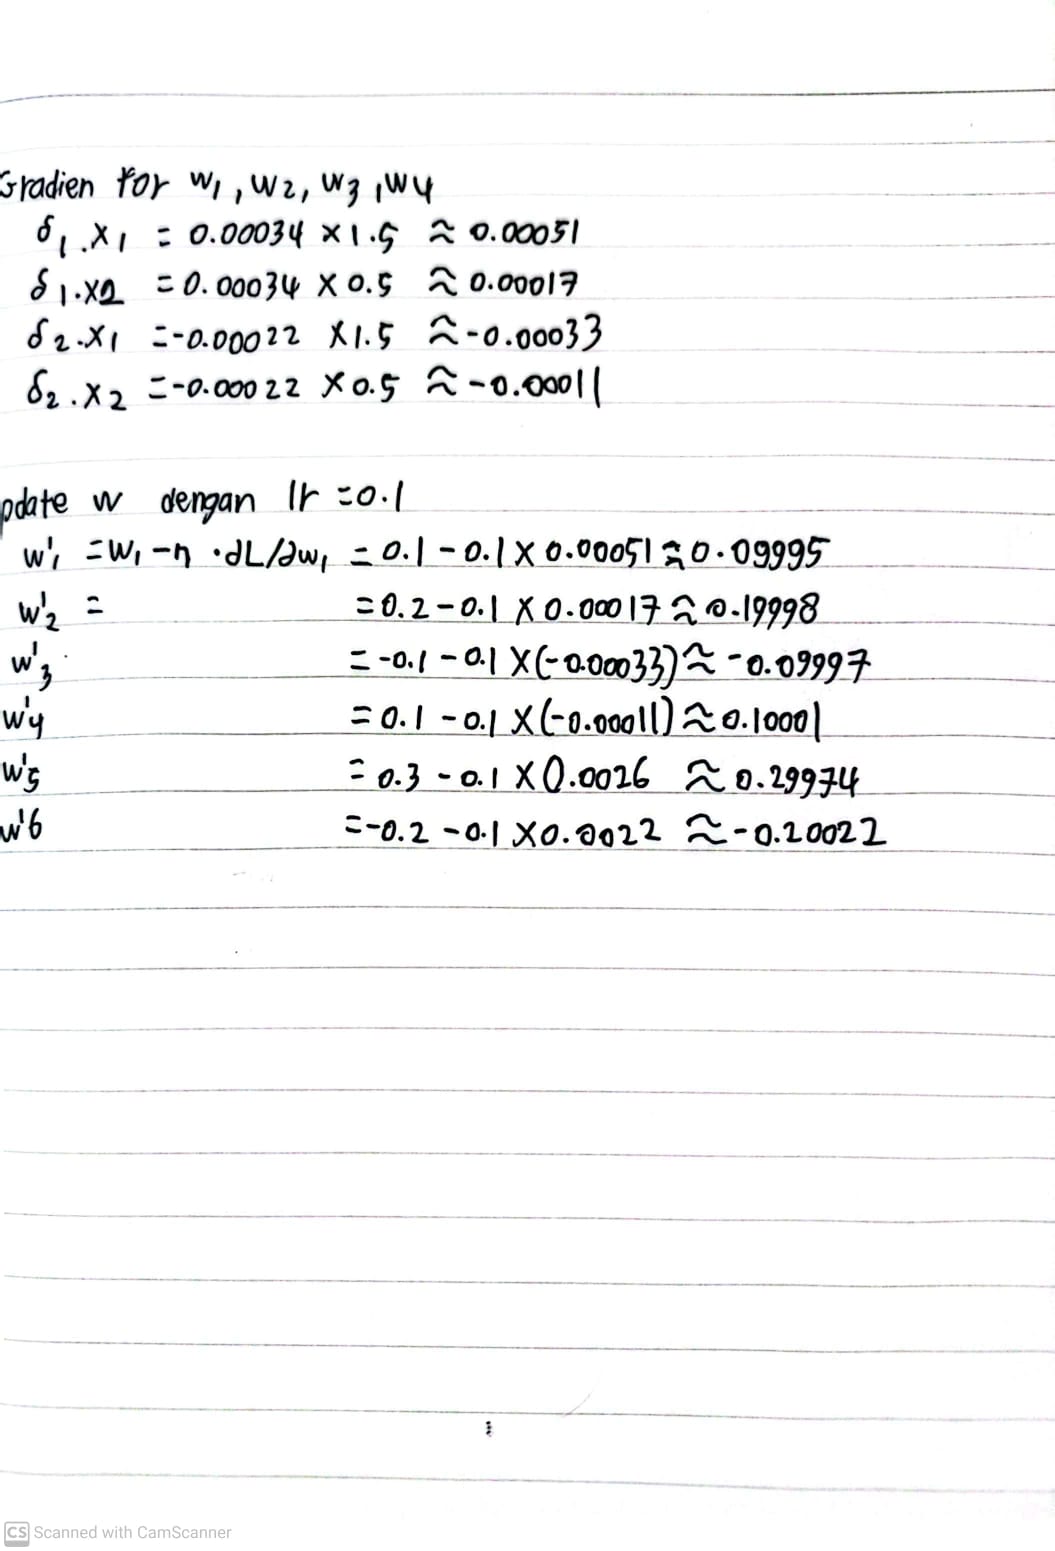 Gradien for w1, w2, w3, w4
δ1.x1 = 0.00034 × 1.5 ≈ 0.00051
δ1.x2 = 0.00034 × 0.5 ≈ 0.00017
δ2.x1 = -0.00022 × 1.5 ≈ -0.00033
δ2.x2 = -0.00022 × 0.5 ≈ -0.00011
pdate w dengan lr = 0.1
w'1 = w1 - η . ∂L/∂w1 = 0.1 - 0.1 × 0.00051 ≈ 0.09995
w'2 = = 0.2 - 0.1 × 0.00017 ≈ 0.19998
w'3 = -0.1 - 0.1 × (-0.00033) ≈ -0.09997
w'4 = 0.1 - 0.1 × (-0.00011) ≈ 0.10001
w'5 = 0.3 - 0.1 × 0.0026 ≈ 0.29974
w'6 = -0.2 - 0.1 × 0.0022 ≈ -0.20022
CS Scanned with CamScanner